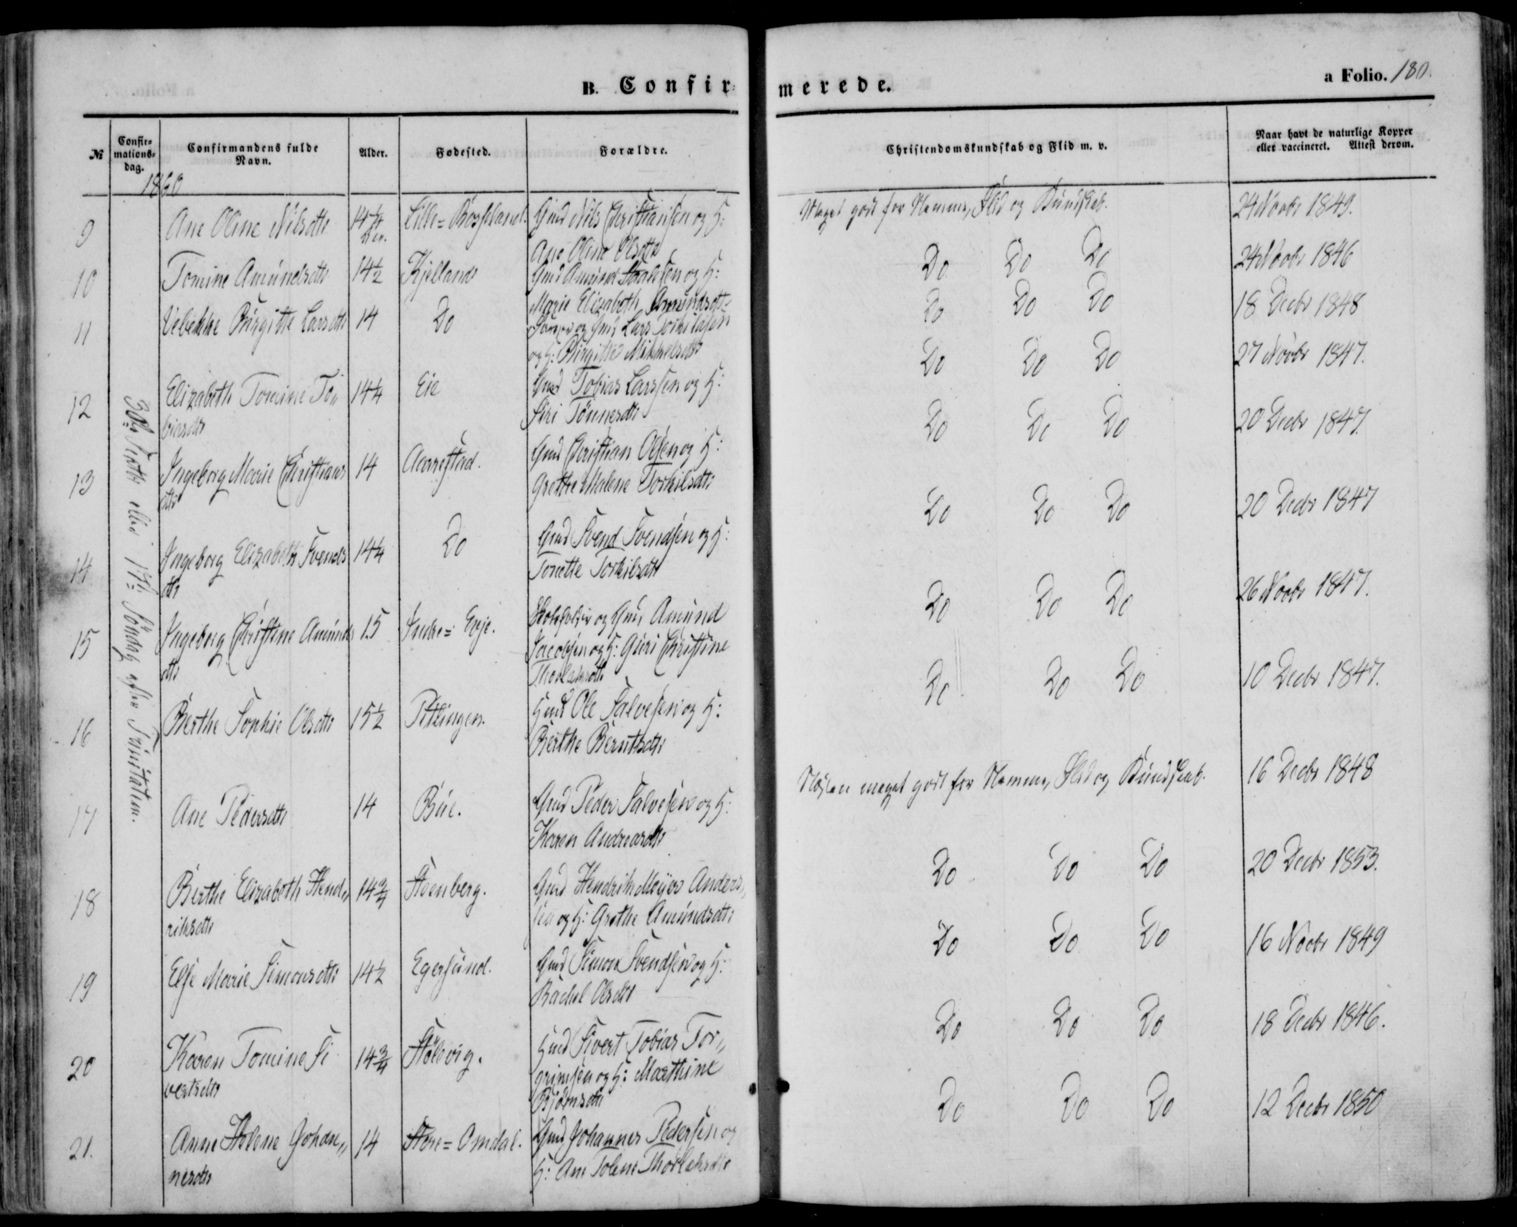 B. Confirmerede.
a Folio. 180.
№ Confirmationsdag. Confirmandens fulde Navn. Alder. Fødested. Forældre. Christendomskundskab og Flid m. v. Naar havt de naturlige Kopper eller vaccineret. Attest derom.
1860
30te Septbr eller 17de Søndag efter Trinitatem.
9 Ane Oline Nilsdtr 14½ Lille= Gmd Nils Christiansen og H: Meget godt for Nemme, Flid og Kundskab. 24 Novbr 1849.
Ane Oline Olsdtr
10 Tomine Amundsdtr 14½ Kjelland Gmd Amund og H: Do Do Do 24 Novbr 1846
Marie Elizabeth Amundsdtr
11 Vebekke Birgitte Larsdtr 14 Do og Gmd Lars Torkildsen Do Do Do 18 Decbr 1848
og H: Birgitte Mikkelsdtr
12 Elizabeth Tomine To- 14¼ Eie Gmd Tobias Larssen og H: Do Do Do 27 Novbr 1847.
biasdtr Siri Tønnesdtr
13 Ingeborg Marie Christians 14 Aarrestad. Gmd Christian Olsen og H: Do Do Do 20 Decbr 1847.
dtr Grethe Malene Torkilsdtr
14 Ingeborg Elizabeth Svends 14¼ Do Gmd Svend Svendsen og H: Do Do Do 20 Decbr 1847
dtr Tonette Torkilsdtr
15 Ingeborg Christine Amunds 15 Indre= Eeje. og Gmd Amund Do Do Do 26 Novbr 1847.
dtr Jacobsen og H: Guri Christine
Thorlaksdtr
16 Berthe Sophie Olsdtr 15½ Puntlingen. Gmd Ole Salvesen og H: Do Do Do 10 Decbr 1847.
Berthe Berntsdtr
17 Ane Pedersdtr 14 Bue. Gmd Peder Salvesen og H: Næsten meget godt for Nemme, Flid og Kundskab. 16 Decbr 1848
Karen Andreasdtr
18 Berthe Elizabeth Hend- 14¾ Steenberg. Gmd Hendrik Meyer Anders- Do Do Do 20 Decbr 1853.
riksdtr sen og H: Grethe Amundsdtr
19 Else Marie Simonsdtr 14½ Egersund. Gmd Simon Svendsen og H: Do Do Do 16 Novbr 1849
Rachel Olsdtr
20 Karen Tomine Si- 14¾ Stølevig. Gmd Sivert Tobias Tor- Do Do Do 18 Decbr 1846.
vertsdtr grimsen og H: Marthine
Bjørnsdtr
21. Anne Helene Johan- 14 Store= Omdal. Gmd Johannes Pedersen og Do Do Do 12 Decbr 1850
nesdtr H: Ane Tolene Thorlaksdtr